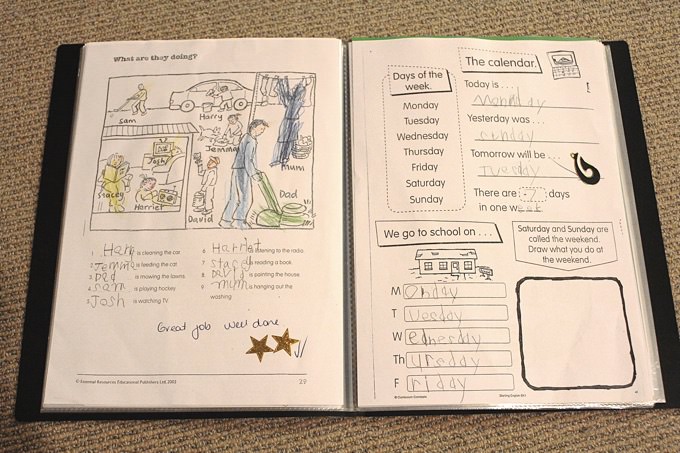 What are they doing?
Sam
Harry
Jemma
Mum
Josh
Stacey
Harriet
David
Dad
1 Harry is cleaning the car
2 Jemma is feeding the cat
3 Dad is mowing the lawns
4 Sam is playing hockey
5 Josh is watching TV
6 Harriet is listening to the radio
7 Stacey is reading a book
8 David is painting the house
9 Mum is hanging out the
washing
Great job well done
© Essential Resources Educational Publishers Ltd, 2003
29
Days of the
week.
Monday
Tuesday
Wednesday
Thursday
Friday
Saturday
Sunday
The calendar.
Today is . . .
Monday
Yesterday was . . .
sunday
Tomorrow will be . . .
Tuesday
There are 7 days
in one week
We go to school on . . .
Monday
Tuesday
Wednesday
Thursday
Friday
Saturday and Sunday are
called the weekend.
Draw what you do at
the weekend.
© Curriculum Concepts